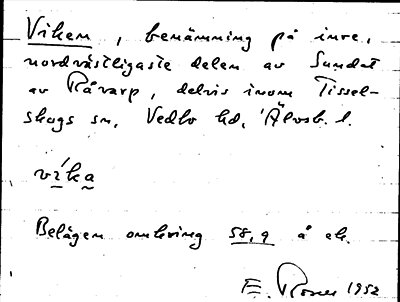 Viken, benämning på inre,
nordvästligaste delen av Sundet
av Råvarp, delvis inom Tissel-
skogs sn, Vedbo hd, Älvsb. l.
víka
Belägen omkring 58,9 å ek.
E. Rosén 1952